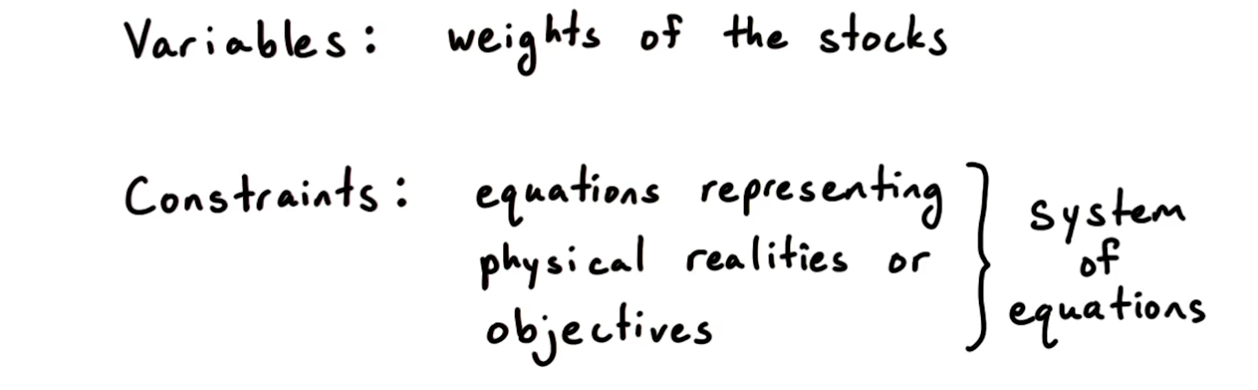 Variables: weights of the stocks
Constraints: equations representing
physical realities or
objectives
system
of
equations